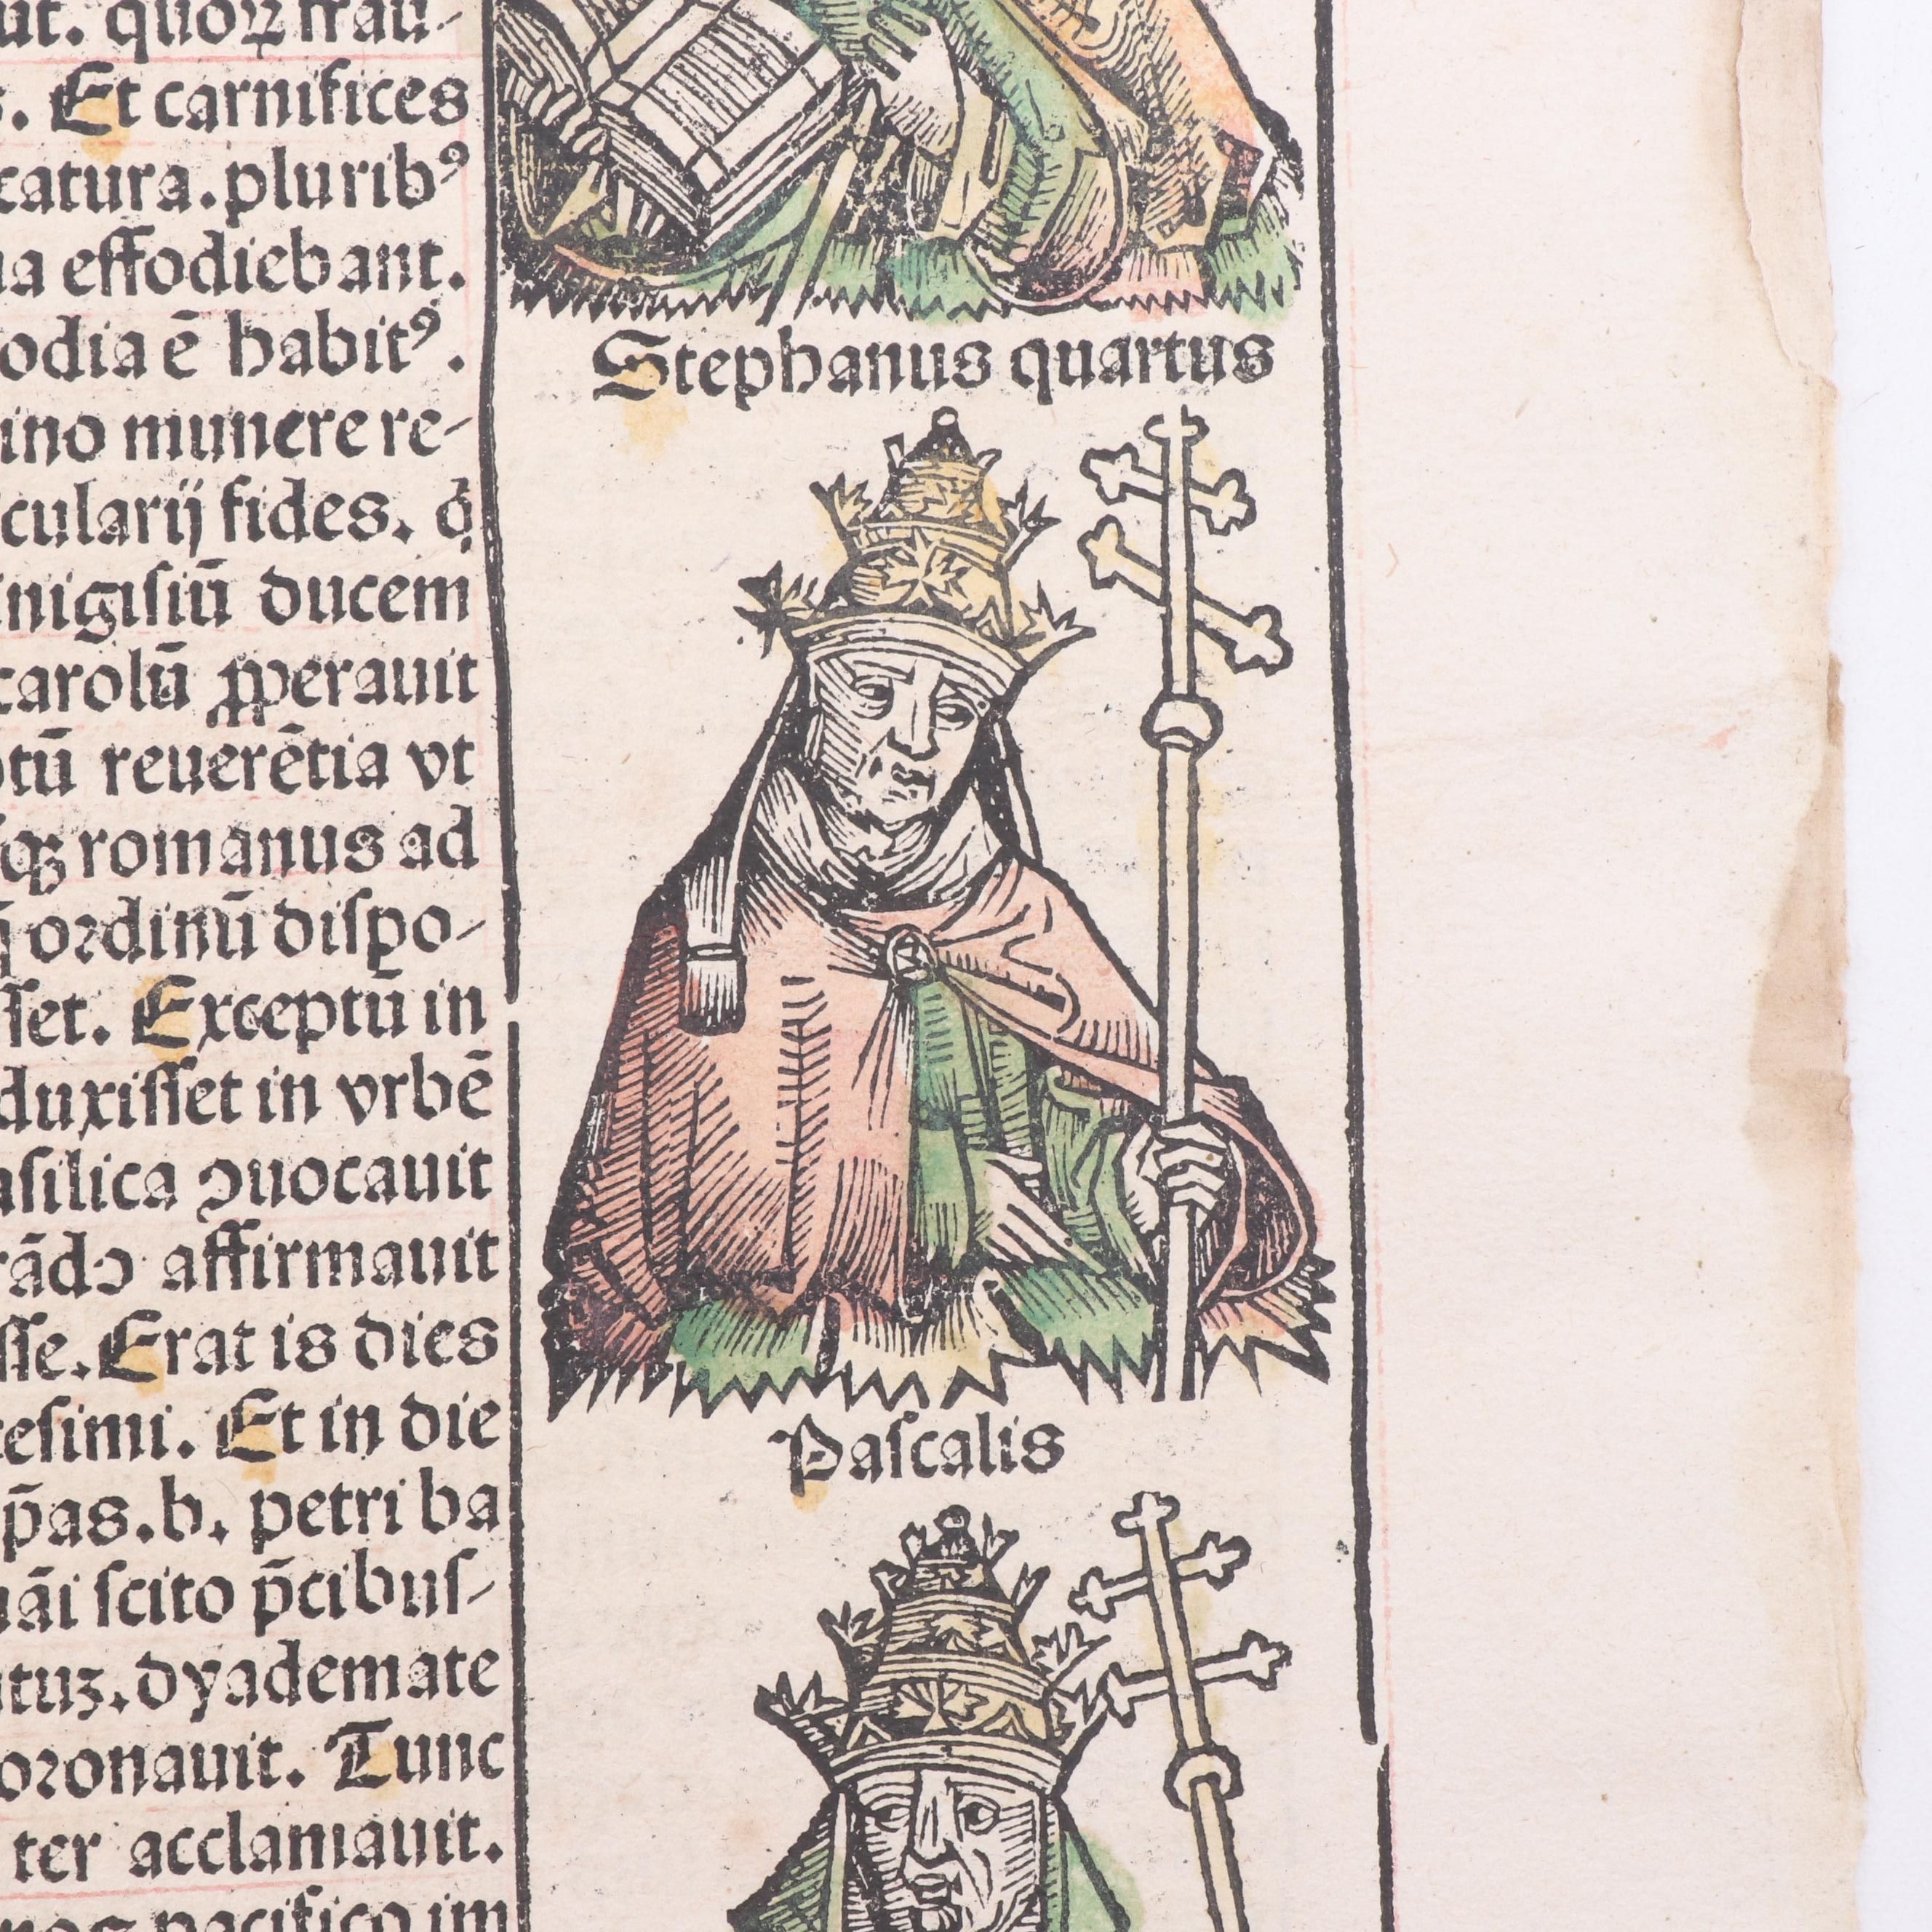 ut. quoꝝ frau-
s. Et carnifices
catura. pluribꝰ
ua effodiebant.
odia ē habitꝰ.
ino munere re-
cularij fides. q̇
inigiſiū ducem
carolū ꝓperauit
ptū reuerētia vt
qꝫ romanus ad
q̄ ordinū diſpo-
ſſet. Exceptū in
duxiſſet in vrbē
aſilica ↄuocauit
rādo affirmauit
ſſe. Erat is dies
ceſimi. Et in die
p̄as. b. petri ba
uāi ſcito p̄cibuſ-
ntuꝫ. dyademate
oronauit. Tunc
ter acclamauit.
nos pacifico im
Stephanus quartus
Paſcalis